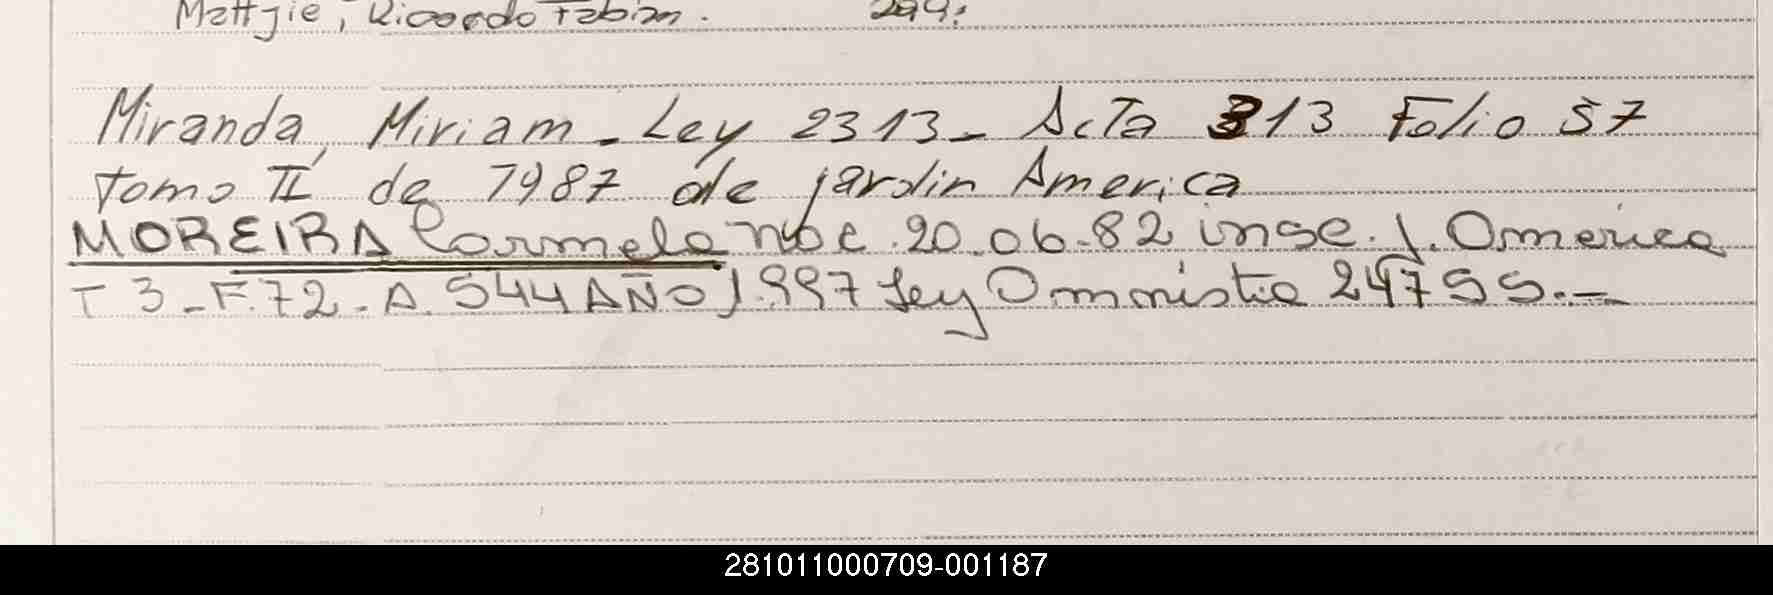 Mattjie, Ricardo Fabian. 294.
Miranda, Miriam - Ley 2313 - Acta 313 Folio 57
Tomo II de 1987 de jardin America
MOREIRA Carmela nac. 20.06.82 insc. J. America
T 3 - F. 72 - A. 544 AÑO 1.997 Ley Amnistia 24755. -
281011000709-001187